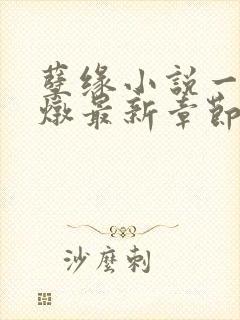 孽缘小说一
燉最新章节
沙麼刺